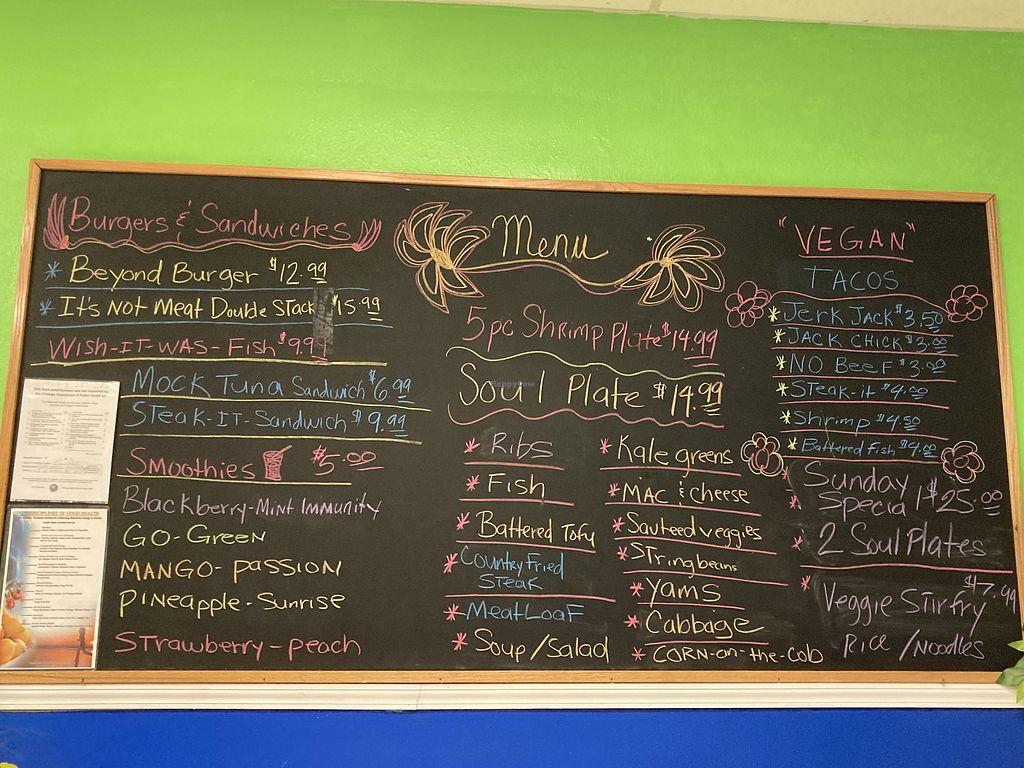 Burgers & Sandwiches
* Beyond Burger $12.99
* It's Not Meat Double Stack $15.99
Wish-IT-WAS-Fish $9.99
Mock Tuna Sandwich $6.99
Steak-IT-Sandwich $9.99
Smoothies $5.00
Blackberry-Mint Immunity
GO-Green
MANGO-PASSION
Pineapple-Sunrise
Strawberry-peach
Menu
5pc Shrimp Plate $14.99
Soul Plate $14.99
* Ribs
* Fish
* Battered Tofu
* Country Fried
Steak
* MeatLoaf
* Soup/Salad
* Kale greens
* Mac & cheese
* Sauteed veggies
* STringbeans
* Yams
* Cabbage
* CORN-on-the-Cob
"VEGAN"
TACOS
* Jerk Jack $3.50
* JACK CHICK $3.00
* NO BeeF $3.00
* Steak-it $4.00
* Shrimp $4.50
* Battered Fish $4.00
* Sunday
Special $25.00
* 2 Soul Plates
* $7.99
Veggie Stirfry
Rice/Noodles
DISCIPLINES OF GOOD HEALTH